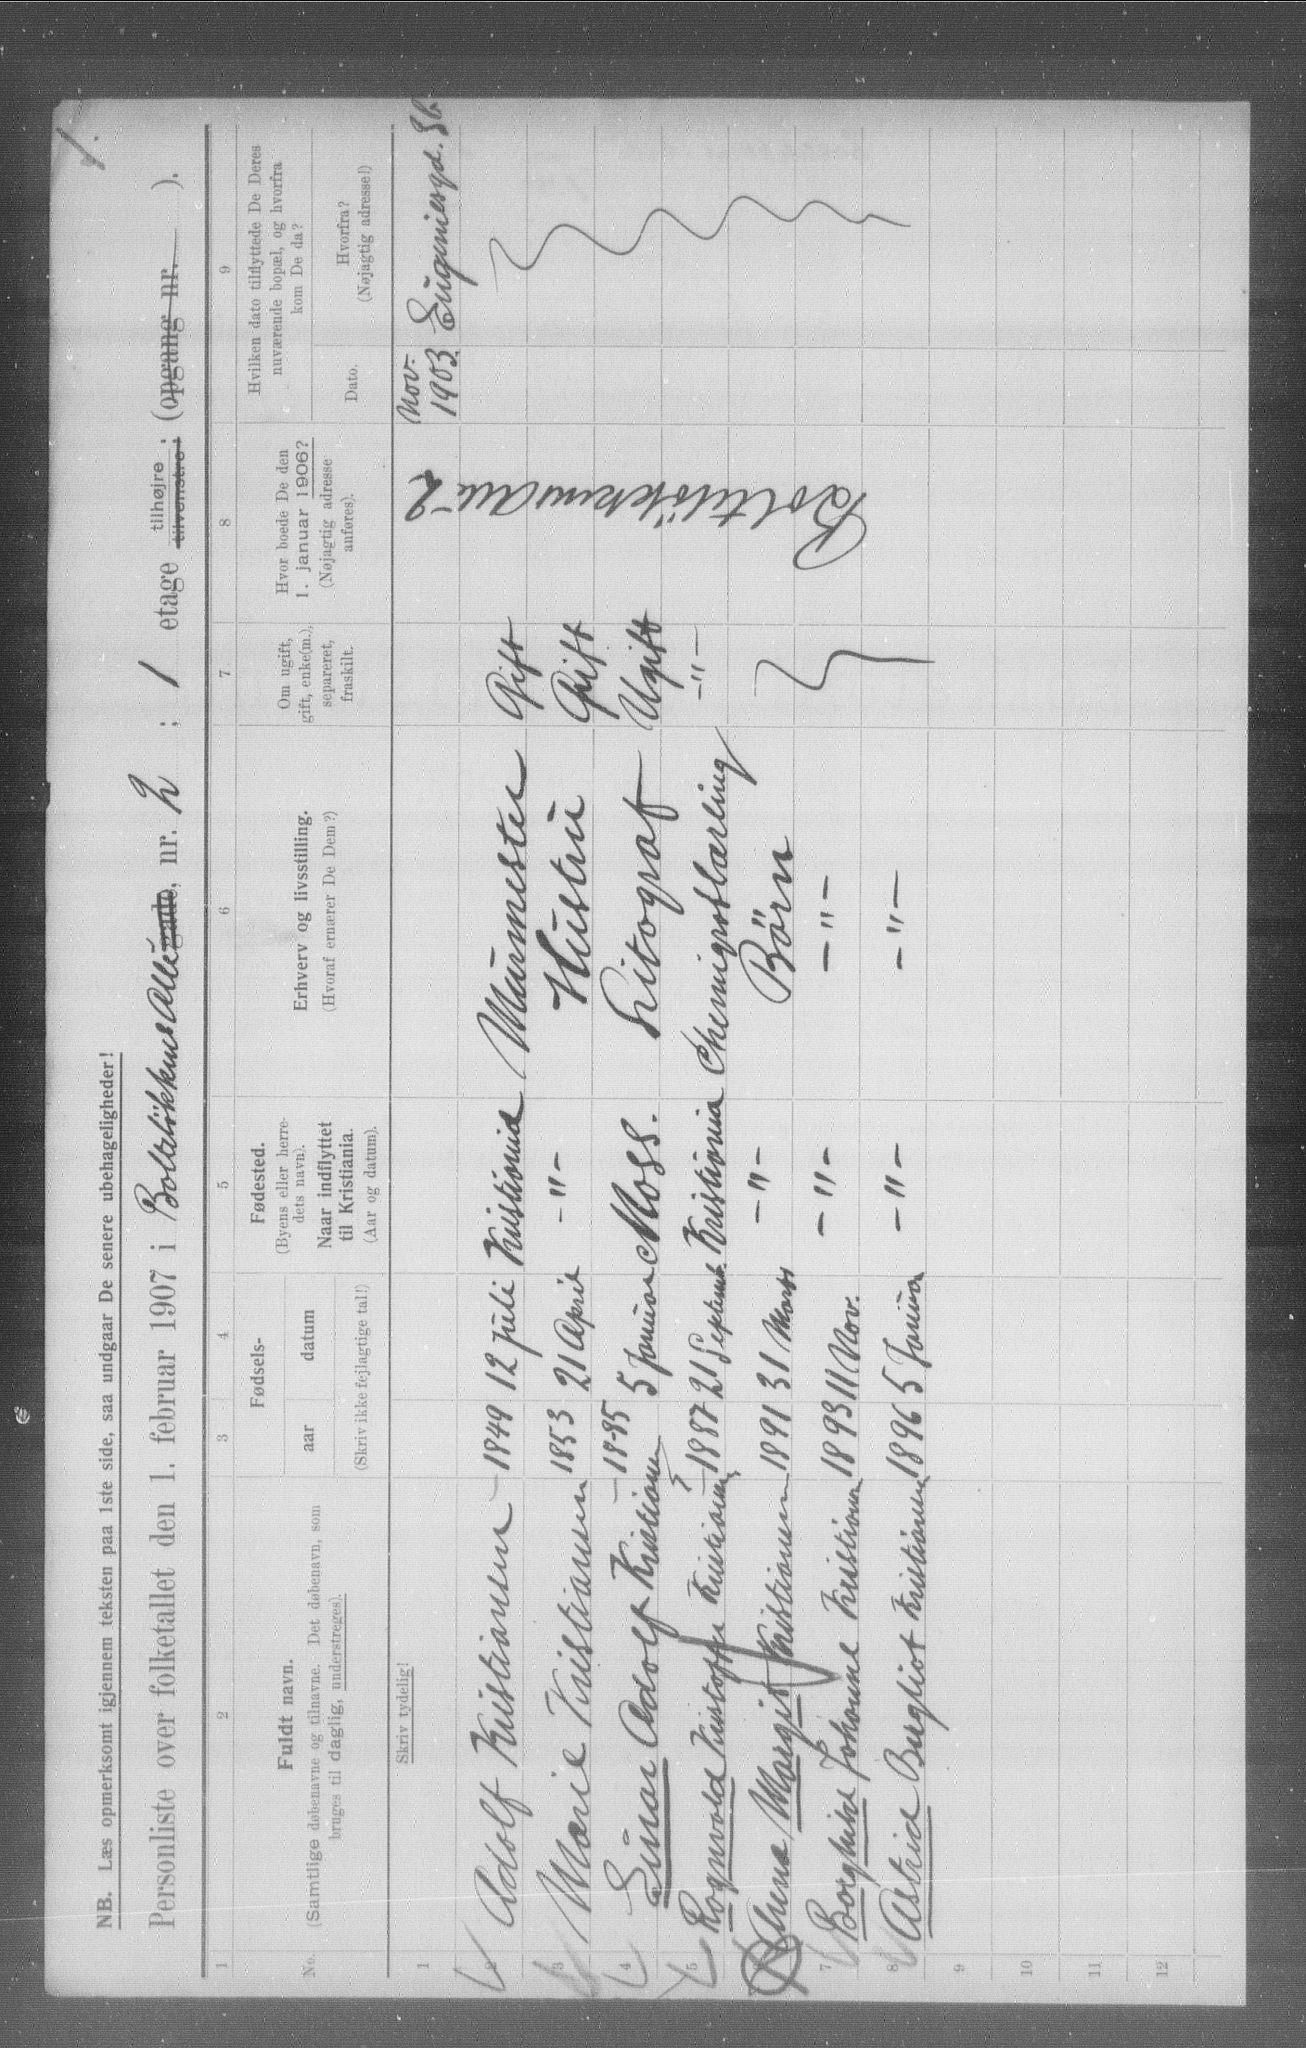 1.
NB. Læs opmerksomt igjennem teksten paa 1ste side, saa undgaar De senere ubehageligheder!
Personliste over folketallet den 1. februar 1907 i Bolteløkkens Allé gade, nr. 2 ; 1 etage tilhøjre ; tilvenstre ; (opgang nr. ).
1 2 3 4 5 6 7 8 9
No. Fuldt navn. (Samtlige døbenavne og tilnavne. Det døbenavn, som bruges til daglig, understreges).
Fødsels- aar datum (Skriv ikke fejlagtige tal!)
Fødested. (Byens eller herredets navn). Naar indflyttet til Kristiania. (Aar og datum).
Erhverv og livsstilling. (Hvoraf ernærer De Dem?)
Om ugift, gift, enke(m.), separeret, fraskilt.
Hvor boede De den 1. januar 1906? (Nøjagtig adresse anføres).
Hvilken dato tilflyttede De Deres nuværende bopæl, og hvorfra kom De da?
Dato. Hvorfra? (Nøjagtig adresse!)
1 Skriv tydelig! Nov. 1903. Eugeniesgd.
2 Adolf Kristiansen 1849 12 juli Kristiania Murmester Gift Bolteløkkens Alle 2
3 Marie Kristiansen 1853 21 April -"- Hustru Gift
4 Einar Adolf Kristiansen 1885 5 Januar Moss. Litograf Ugift
5 Rognvald Kristoffer Kristiansen 1887 21 Septemb. Kristiania Chemigraflærling -"-
Anna Margit Kristiansen 1891 31 Marts -"- Börn
7 Borghild Johanne Kristiansen 1893 11 Nov. -"- -"-
8 Astrid Bergliot Kristiansen 1896 5 Januar -"- -"-
9
10
11
12